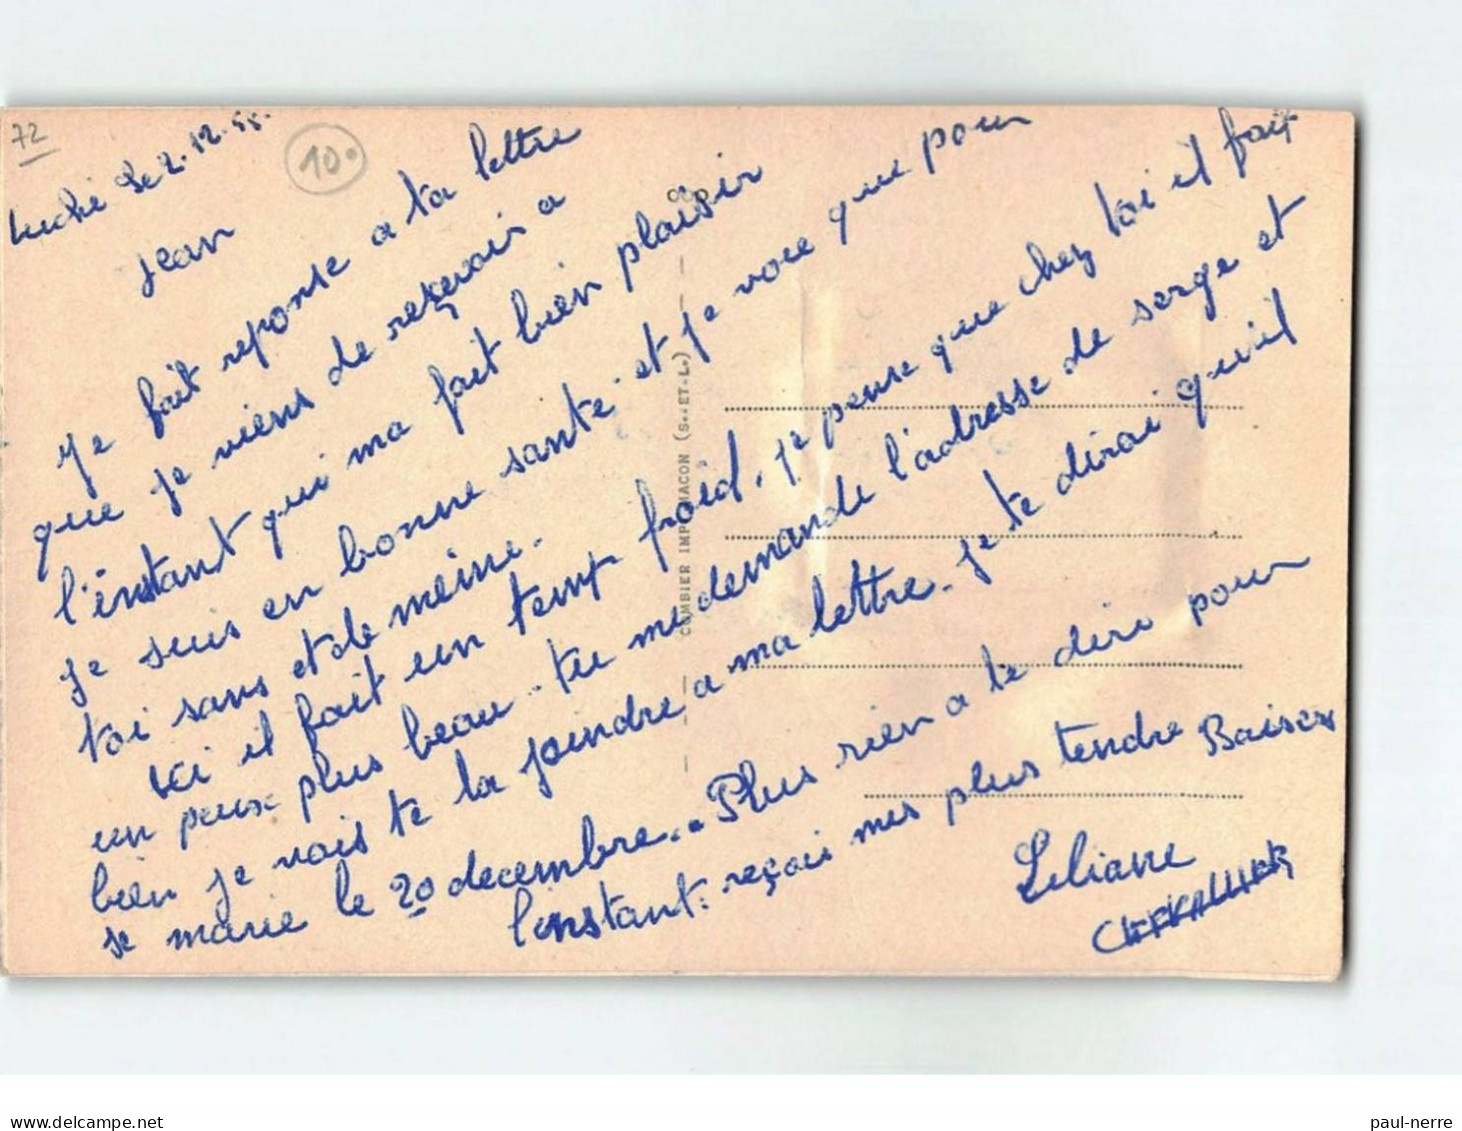 72
10.
Luché Le 2.12.55.
Jean
Je fait reponse a ta lettre
que je viens de reçevoir a
l'instant qui ma fait bien plaisir
je suis en bonne santé. et je voie que pour
toi sans et de meine.
ici il fait un temp froid. je pense que chez toi il fait
un peux plus beau. tu me demande l'adresse de serge et
bien je vais te la joindre a ma lettre. je te dirai qu'il
se marie le 20 decembre.. Plus rien a te dire pour
l'instant: reçoi mes plus tendre Baisers
Liliane
CHEVALLIER
COMBIER IMP. MACON (S.-ET-L.)
delcampe.net
paul-nerre